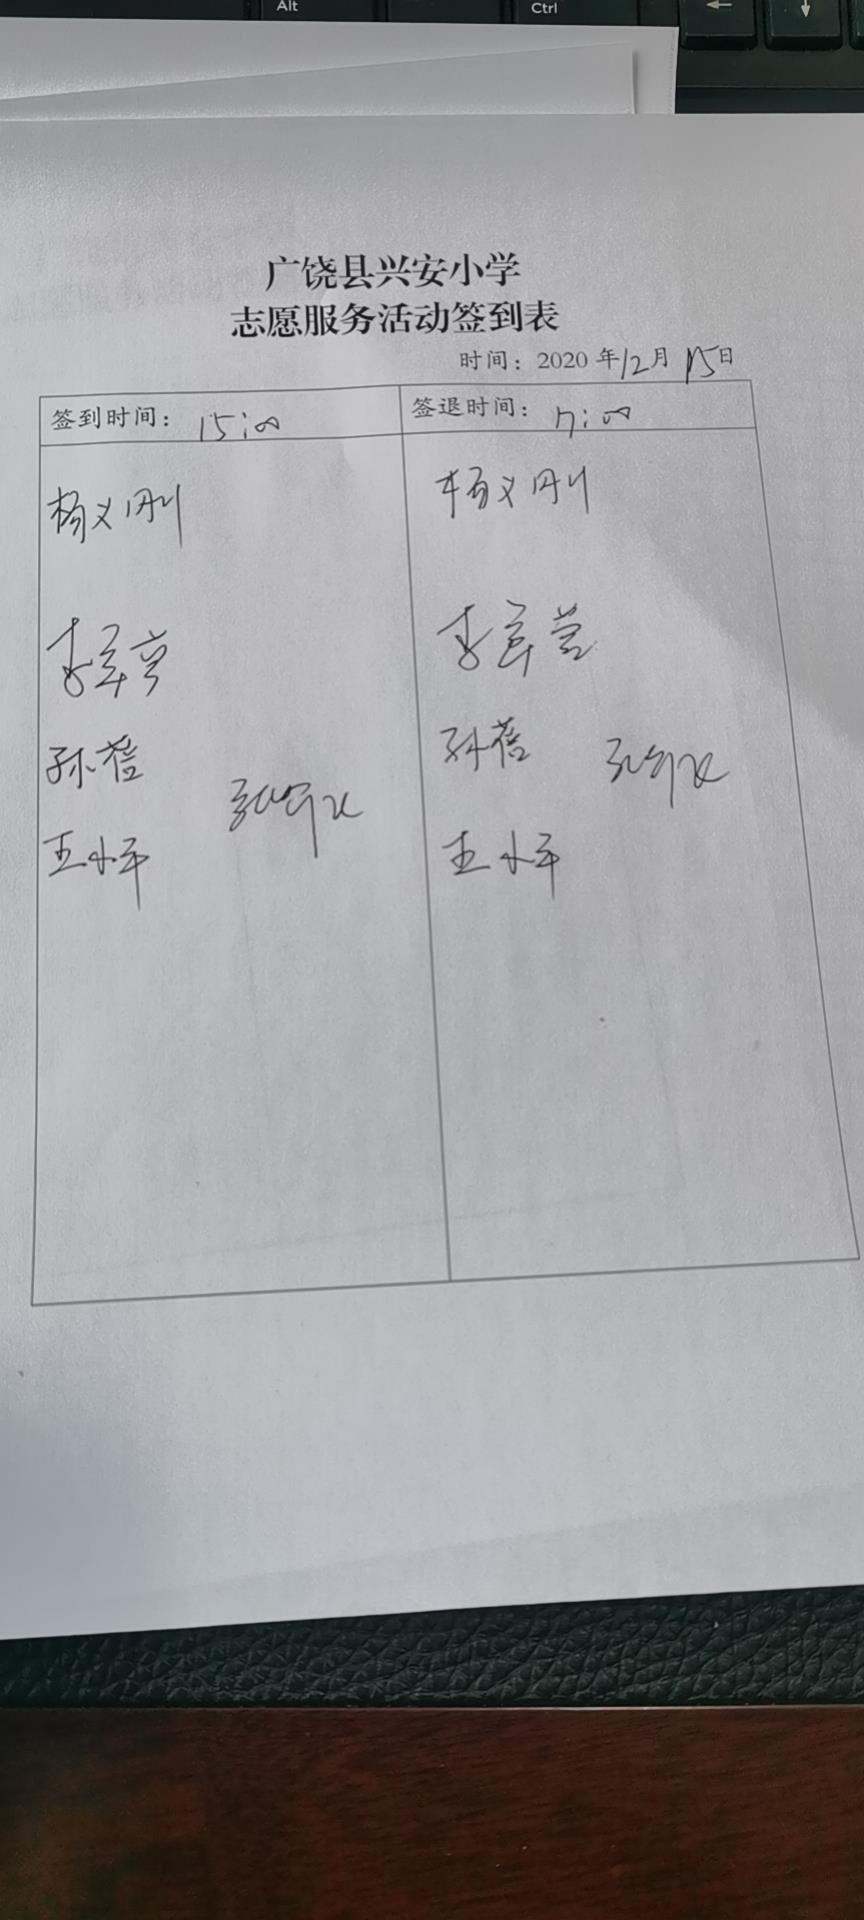 Alt
Ctrl
←
↓
广饶县兴安小学
志愿服务活动签到表
时间：2020年12月15日
签到时间：15:00
签退时间：17:00
杨义刚
杨义刚
李
李
孙蓓
孙蓓
王小平
王小平